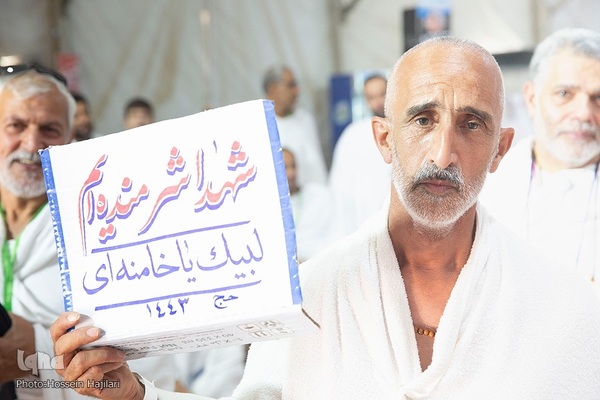 شهدا شرمنده ایم
لبیک یا خامنه ای
حج ۱۴۴۳
iqna
Photo:Hossein Hajilari